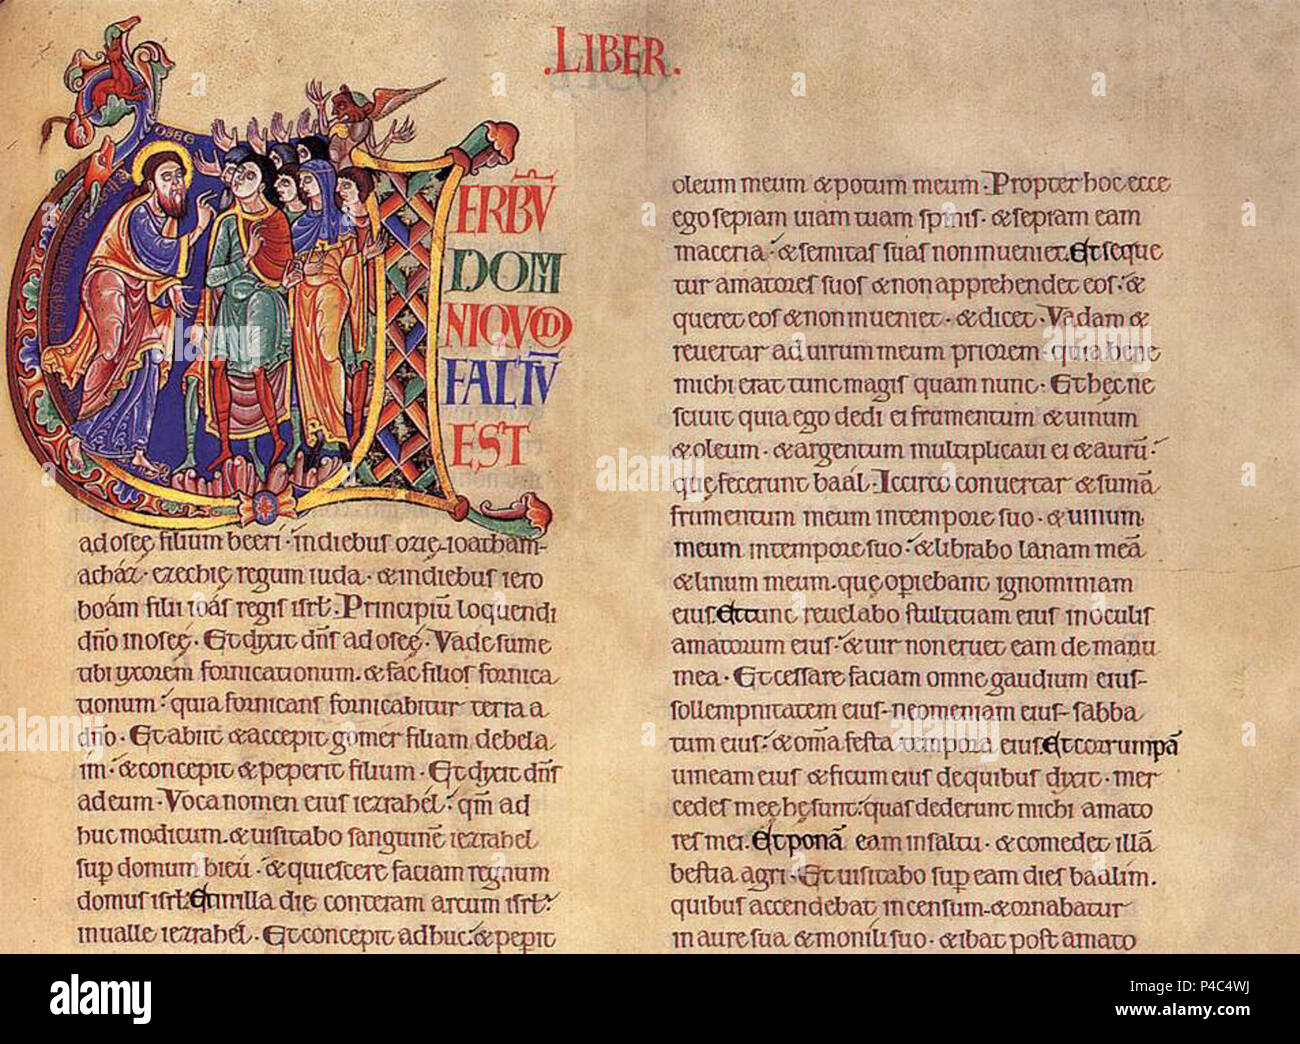 .LIBER.
OSEE
ERBŪ
DOMI
NI QVOD
FACTŪ
EST
ad oseę filium beeri · in diebus ozię · ioatham ·
achaz · ezechię regum iuda · & in diebus iero
boam filii ioas regis isrl̄. Principiū loquendi
dn̄o in oseę · Et dixit dn̄s ad oseę · Vade sume
tibi uxorem fornicationum · & fac filios fornica
tionum · quia fornicans fornicabitur terra a
dn̄o · Et abiit & accepit gomer filiam debela
im · & concepit & peperit filium · Et dixit dn̄s
ad eum · Voca nomen eius iezrahel · qm̄ ad
huc modicum · & uisitabo sanguinē iezrahel
sup domum hieu · & quiescere faciam regnum
domus isrl̄. Et in illa die conteram arcum isrl̄ ·
in ualle iezrahel · Et concepit adhuc · & pepit
oleum meum & potum meum · Propter hoc ecce
ego sepiam uiam tuam spinis · & sepiam eam
maceria · & semitas suas non inueniet. Et seque
tur amatores suos & non apprehendet eos · &
queret eos & non inueniet · & dicet · Vadam &
reuertar ad uirum meum priorem · quia bene
michi erat tunc magis quam nunc · Et hęc ne
sciuit quia ego dedi ei frumentum & uinum
& oleum · & argentum multiplicaui ei & aurū ·
quę fecerunt baal · Iccirco conuertar & sumā
frumentum meum in tempore suo · & uinum
meum in tempore suo · & librabo lanam meā
& linum meum · quę opiebant ignominiam
eius. Et tunc reuelabo stultitiam eius in oculis
amatorum eius · & uir non eruet eam de manu
mea · Et cessare faciam omne gaudium eius ·
sollempnitatem eius · neomeniam eius · sabba
tum eius · & om̄a festa tempora eius. Et corrumpā
uineam eius & ficum eius de quibus dixit · mer
cedes meę hę sunt · quas dederunt michi amato
res mei. Et ponā eam in saltu · & comedet illā
bestia agri · Et uisitabo sup eam dies baalim.
quibus accendebat incensum · & ornabatur
in aure sua & monili suo · & ibat post amato
alamy
Image ID: P4C4WJ
www.alamy.com